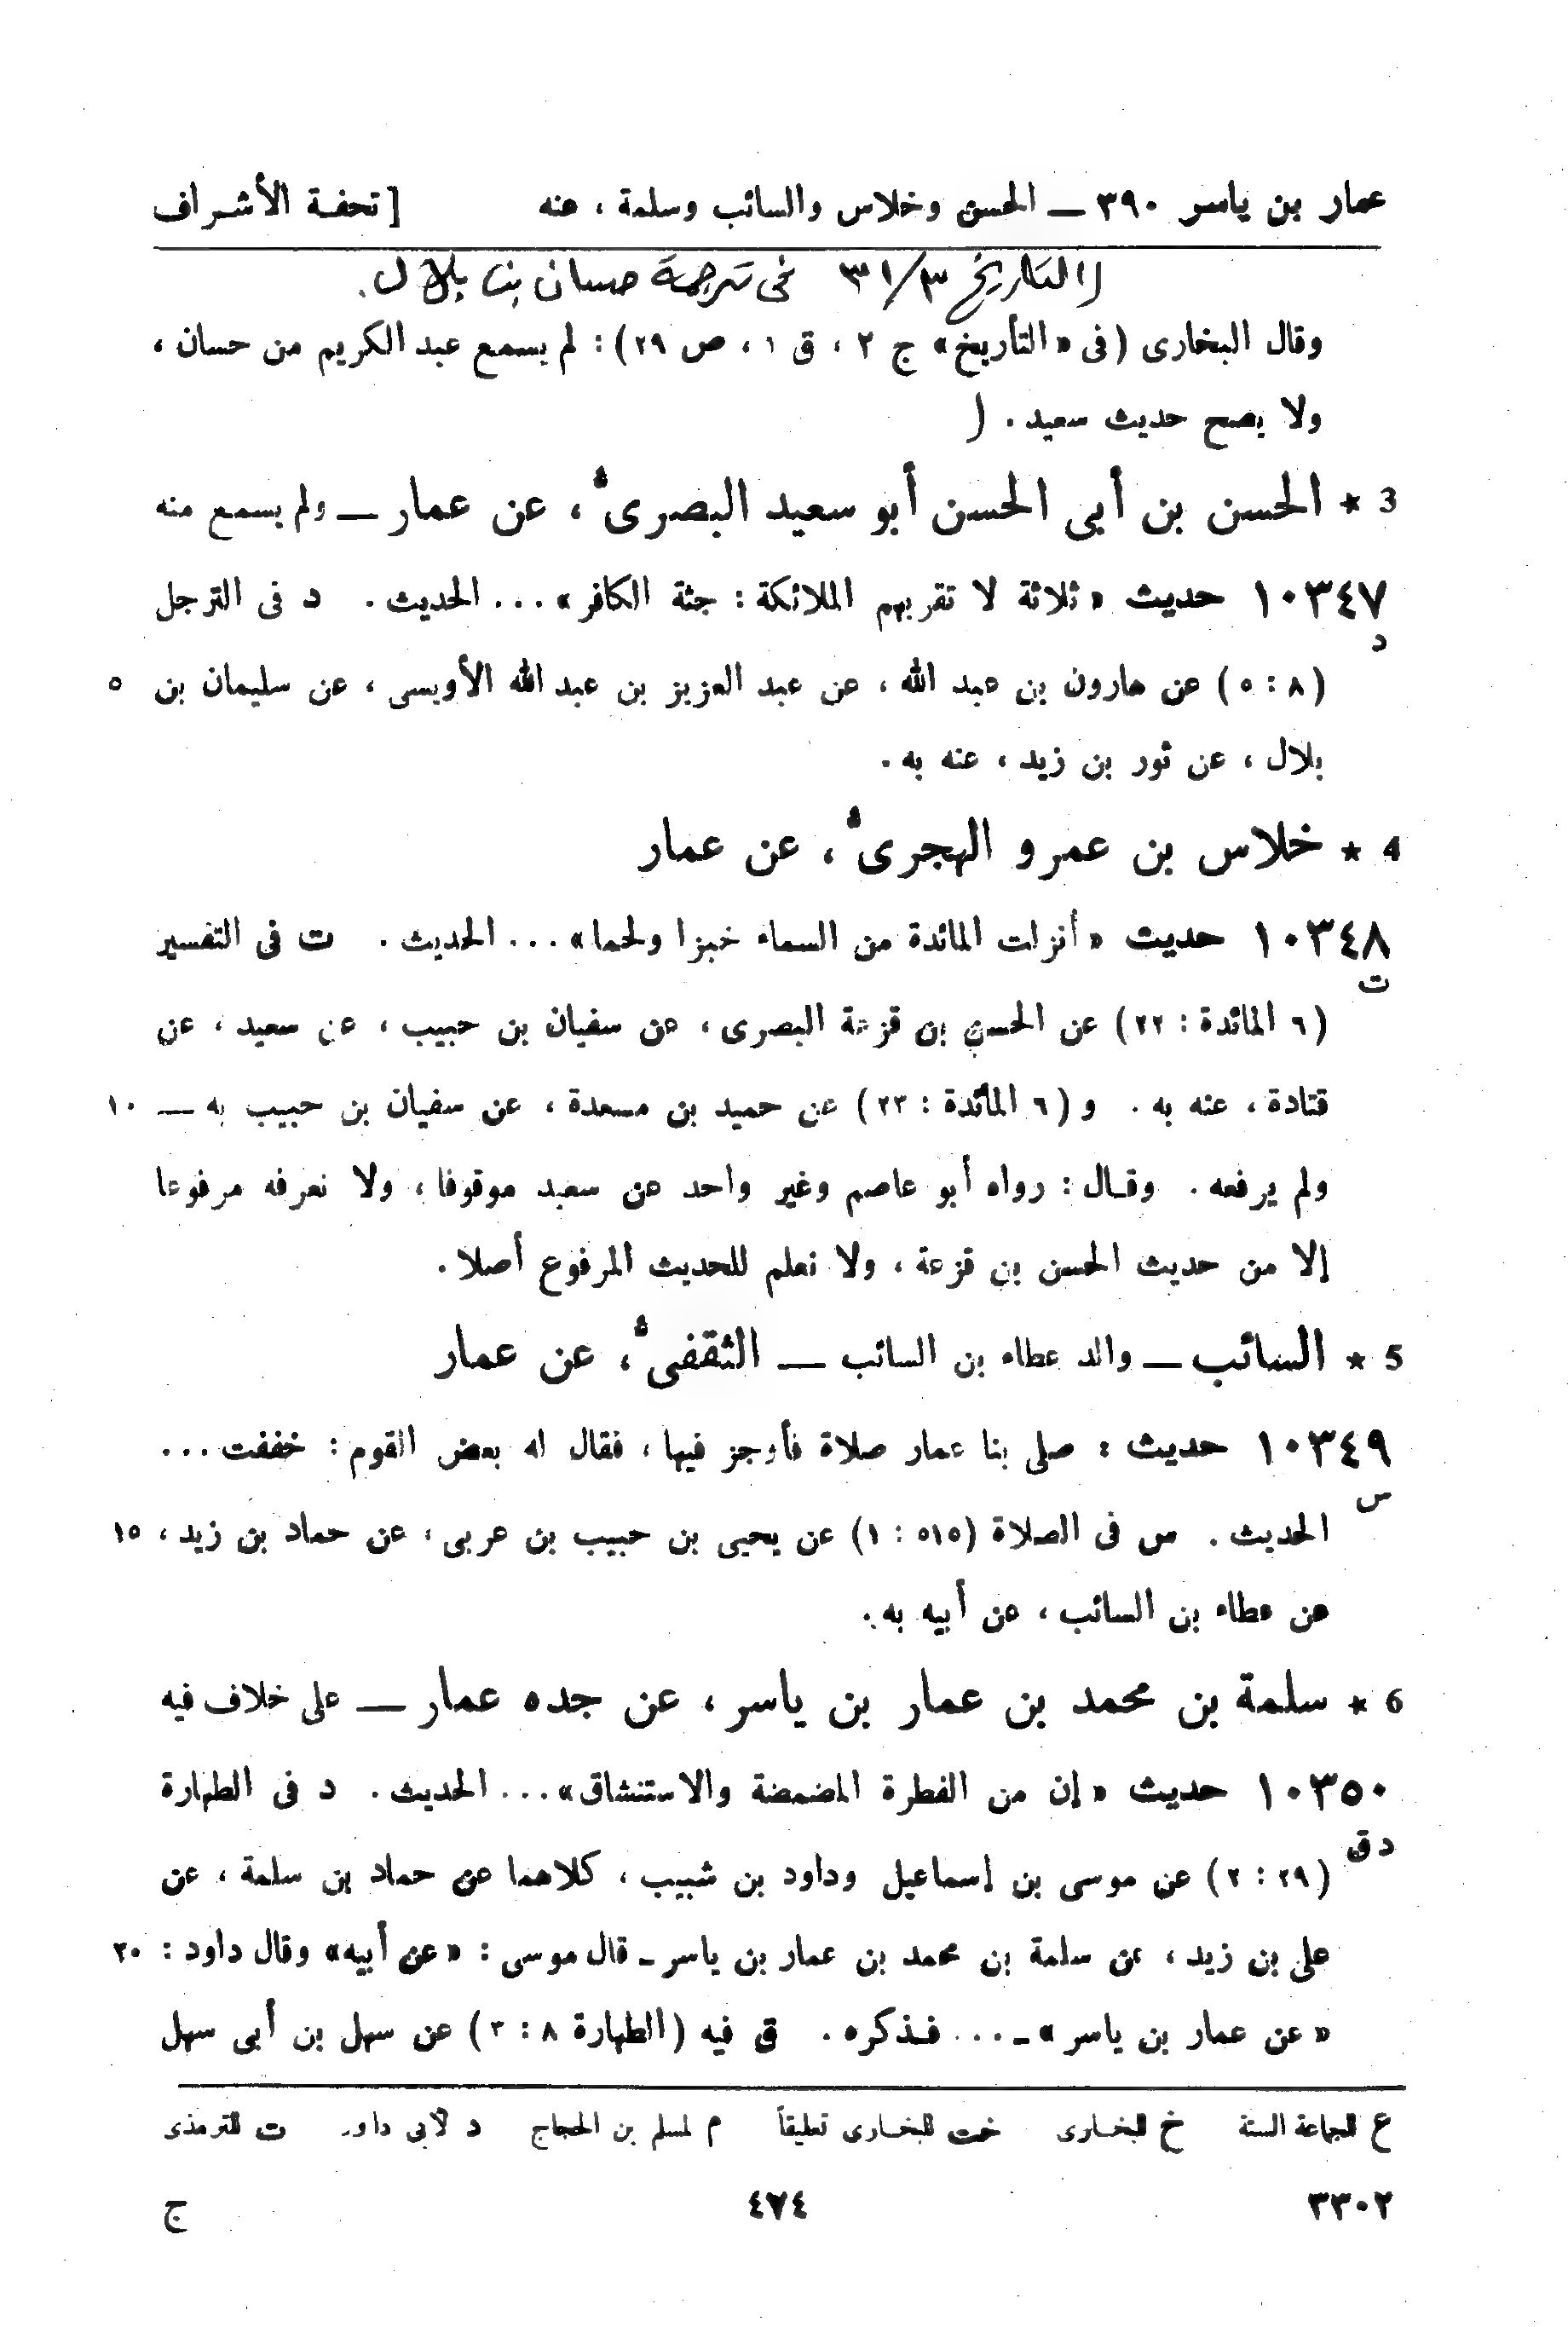 عمار بن ياسر ٣٩٠ — الحسن وخلاس والسائب وسلمة ، عنه [ تحفة الأشراف
(التاريخ ٣١/٣ في ترجمة حسان بن بلال.
وقال البخارى (فى «التأريخ» ج ٢ ، ق ١ ، ص ٢٩) : لم يسمع عبد الكريم من حسان ،
ولا يصح حديث سعيد . (
3 * الحسن بن أبى الحسن أبو سعيد البصرى ، عن عمار — ولم يسمع منه
١٠٣٤٧ حديث « ثلاثة لا تقربهم الملائكة : جثة الكافر» ... الحديث . د فى الترجل
د
(٨ : ٥) عن هارون بن عبد الله ، عن عبد العزيز بن عبد الله الأويسى ، عن سليمان بن ٥
بلال ، عن ثور بن زيد ، عنه به .
4 * خلاس بن عمرو الهجرى ، عن عمار
١٠٣٤٨ حديث « أنزلت المائدة من السماء خبزا ولحما» ... الحديث . ت فى التفسير
ت
(٦ المائدة : ٢٢) عن الحسن بن قزعة البصرى ، عن سفيان بن حبيب ، عن سعيد ، عن
قتادة ، عنه به . و (٦ المائدة : ٢٣) عن حميد بن مسعدة ، عن سفيان بن حبيب به — ١٠
ولم يرفعه . وقال : رواه أبو عاصم وغير واحد عن سعيد موقوفا ، ولا نعرفه مرفوعا
إلا من حديث الحسن بن قزعة ، ولا نعلم للحديث المرفوع أصلا .
5 * السائب — والد عطاء بن السائب — الثقفى ، عن عمار
١٠٣٤٩ حديث : صلى بنا عمار صلاة فأوجز فيها ، فقال له بعض القوم : خففت ...
س
الحديث . س فى الصلاة (٥١٥ : ١) عن يحيى بن حبيب بن عربى ، عن حماد بن زيد ، ١٥
عن عطاء بن السائب ، عن أبيه به .
6 * سلمة بن محمد بن عمار بن ياسر ، عن جده عمار — على خلاف فيه
١٠٣٥٠ حديث « إن من الفطرة المضمضة والاستنشاق» ... الحديث . د فى الطهارة
د ق
(٢٩ : ٢) عن موسى بن إسماعيل وداود بن شبيب ، كلاهما عن حماد بن سلمة ، عن
على بن زيد ، عن سلمة بن محمد بن عمار بن ياسر - قال موسى : «عن أبيه» وقال داود : ٢٠
« عن عمار بن ياسر » - ... فذكره . ق فيه (الطهارة ٨ : ٣) عن سهل بن أبى سهل
ع للجماعة الستة خ للبخارى خت للبخارى تعليقاً م لمسلم بن الحجاج د لأبى داود ت للترمذى
٣٣٠٢ ٤٧٤ ج